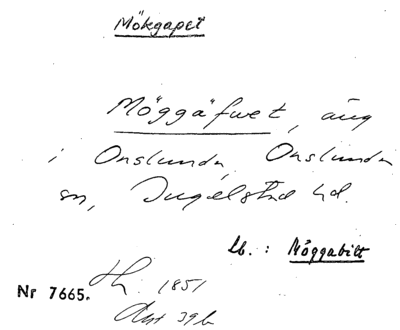 Mökgapet
Möggäfwet, äng
i Onslunda Onslunda
sn, Ingelstad hd.
lb. : Möggabitt
Nr 7665. Lh. 1851
Akt 39b